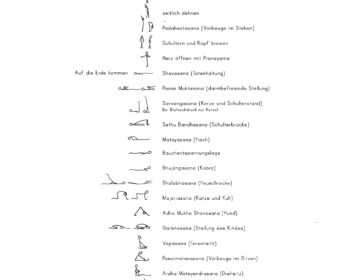 seitlich dehnen
Padahastasana (Vorbeuge im Stehen)
Schultern und Kopf kreisen
Herz öffnen mit Pranayama
Auf die Erde kommen
Shavasana (Totenhaltung)
Pavan Muktasana (darmbefreiende Stellung)
Sarvangasana (Kerze und Schulterstand)
Bei Bluthochdruck nur Kerze!
Sethu Bandhasana (Schulterbrücke)
Matsyasana (Fisch)
Bauchentspannungslage
Bhujangasana (Kobra)
Shalabhasana (Heuschrecke)
Marjariasana (Katze und Kuh)
Adho Mukha Shvanasana (Hund)
Garbhasana (Stellung des Kindes)
Vajrasana (Fersensitz)
Paschimotanasana (Vorbeuge im Sitzen)
Ardha Matsyendrasana (Drehsitz)